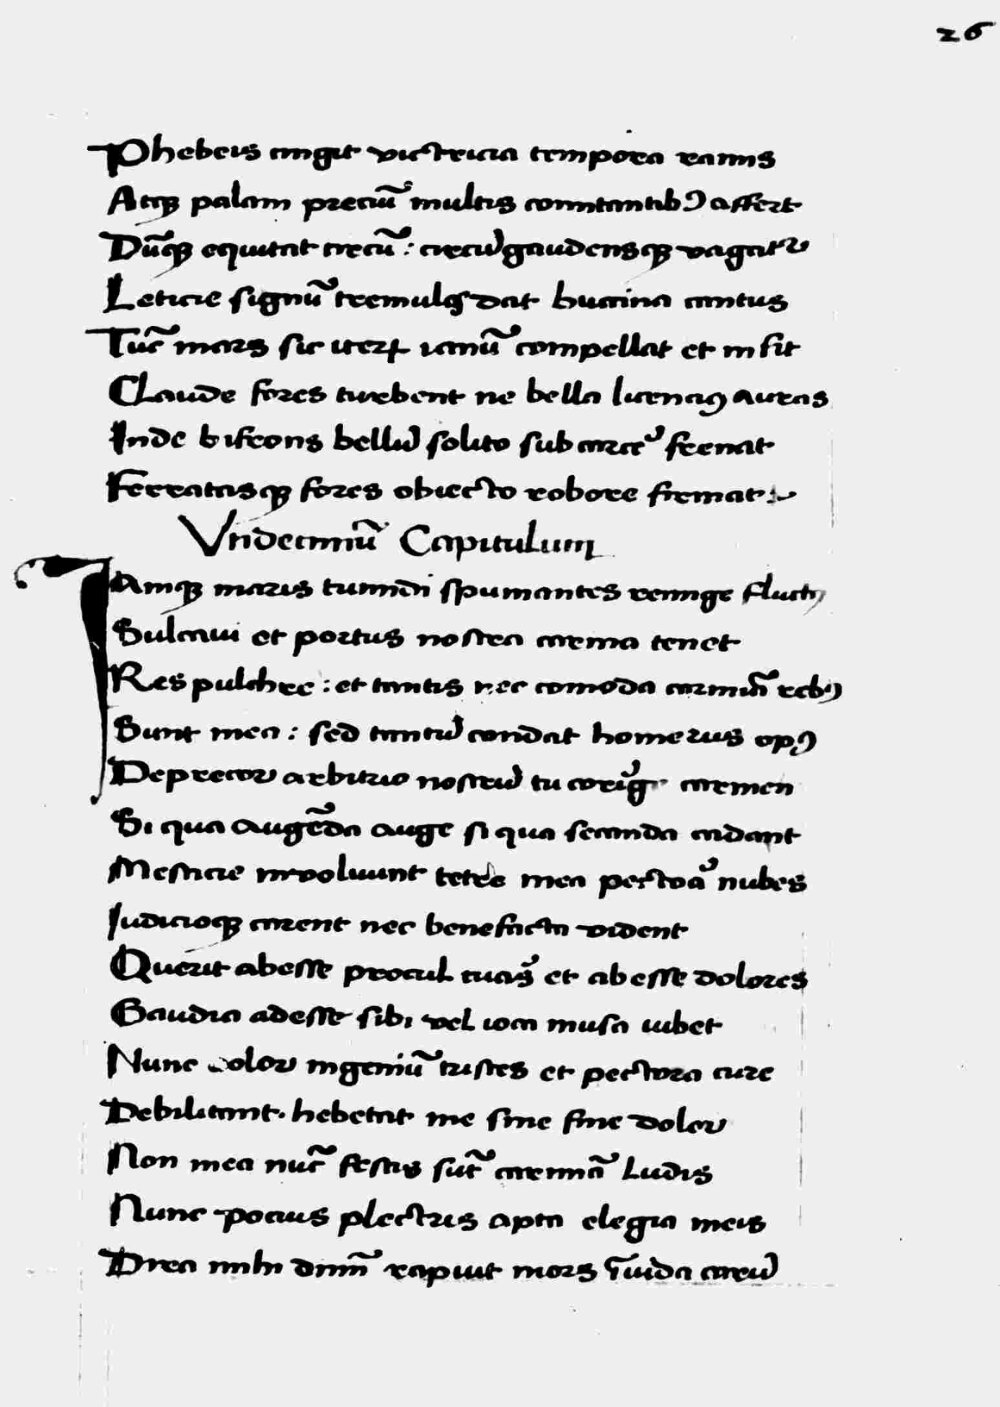 26
Phebeis cingit victricia tempora ramis
Atqꝫ palam preciũ multis comitantibꝰ affert
Dũqꝫ equitat circũ : circũ gaudensqꝫ vagatur
Leticie signũ tremulꝰ dat buccina cantus
Tũc mars sic iterꝝ ianũ compellat et insit
Claude fores turbent ne bella licenciꝰ auras
Inde bifrons bellũ solito sub carcere frenat
Ferratasqꝫ fores obiecto robore firmat :
Vndecimũ Capitulum
IAmqꝫ maris tumidi spumantes remige fluctꝰ
Sulcaui et portus nostra carina tenet
Res pulchre : et tantis nec comoda carmiã rebꝰ
Sunt mea : sed tantũ condat homerus opꝰ
Deprecor arbitrio nostrũ tu corige carmen
Si qua augẽda auge si qua secanda cadant
Mesticie inuoluunt tetre mea pectora nubes
Iudicioqꝫ carent nec benefacta vident
Querit abesse procul curas et abesse dolores
Gaudia adesse sibi vel ioca musa iubet
Nunc dolor ingeniũ tristes et pectora cure
Debilitant . hebetat me sine fine dolor
Non mea nũc festis sũt carmiã ludis
Nunc pocius plectris apta elegia meis
Dira mihi dimĩ rapuit mors ĩuida carũ